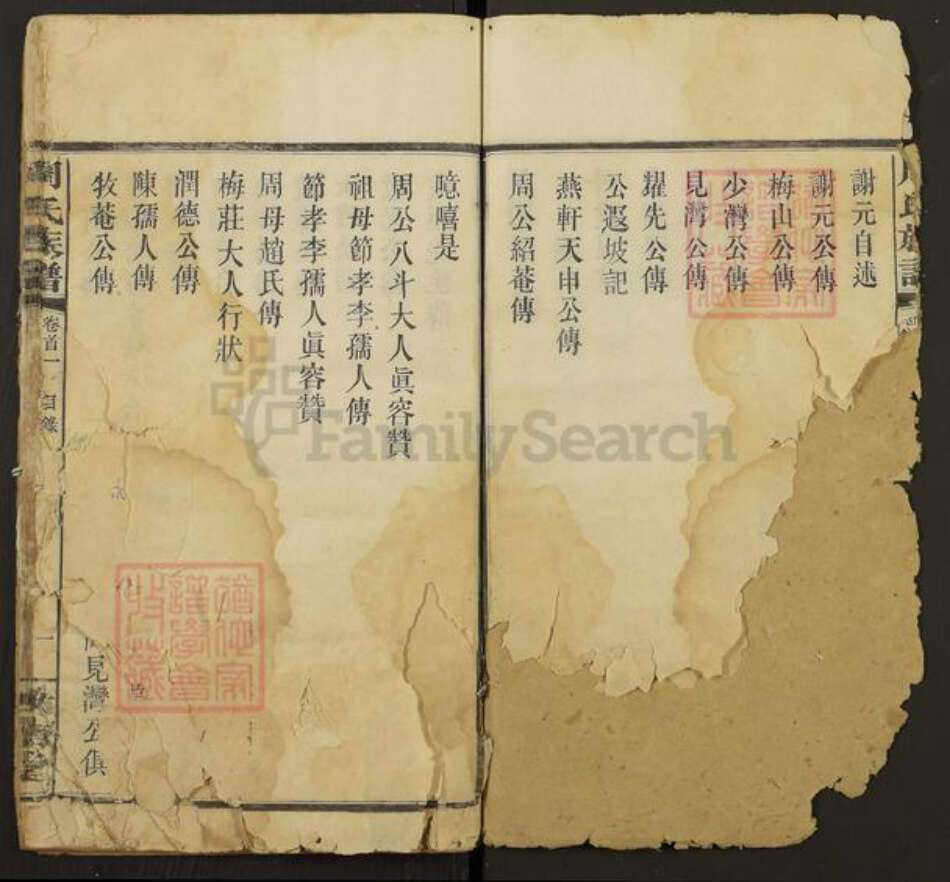 謝元自述
謝元公傳
梅山公傳
少灣公傳
見灣公傳
耀先公傳
公遐坡記
燕軒天申公傳
周公紹菴傳
噫嘻是
周公八斗大人眞容贊
祖母節孝李孺人傳
節孝李孺人眞容贊
周母趙氏傳
梅莊大人行狀
潤德公傳
陳孺人傳
牧菴公傳
見灣公俱
周氏族譜
卷首一
目錄
一
FamilySearch